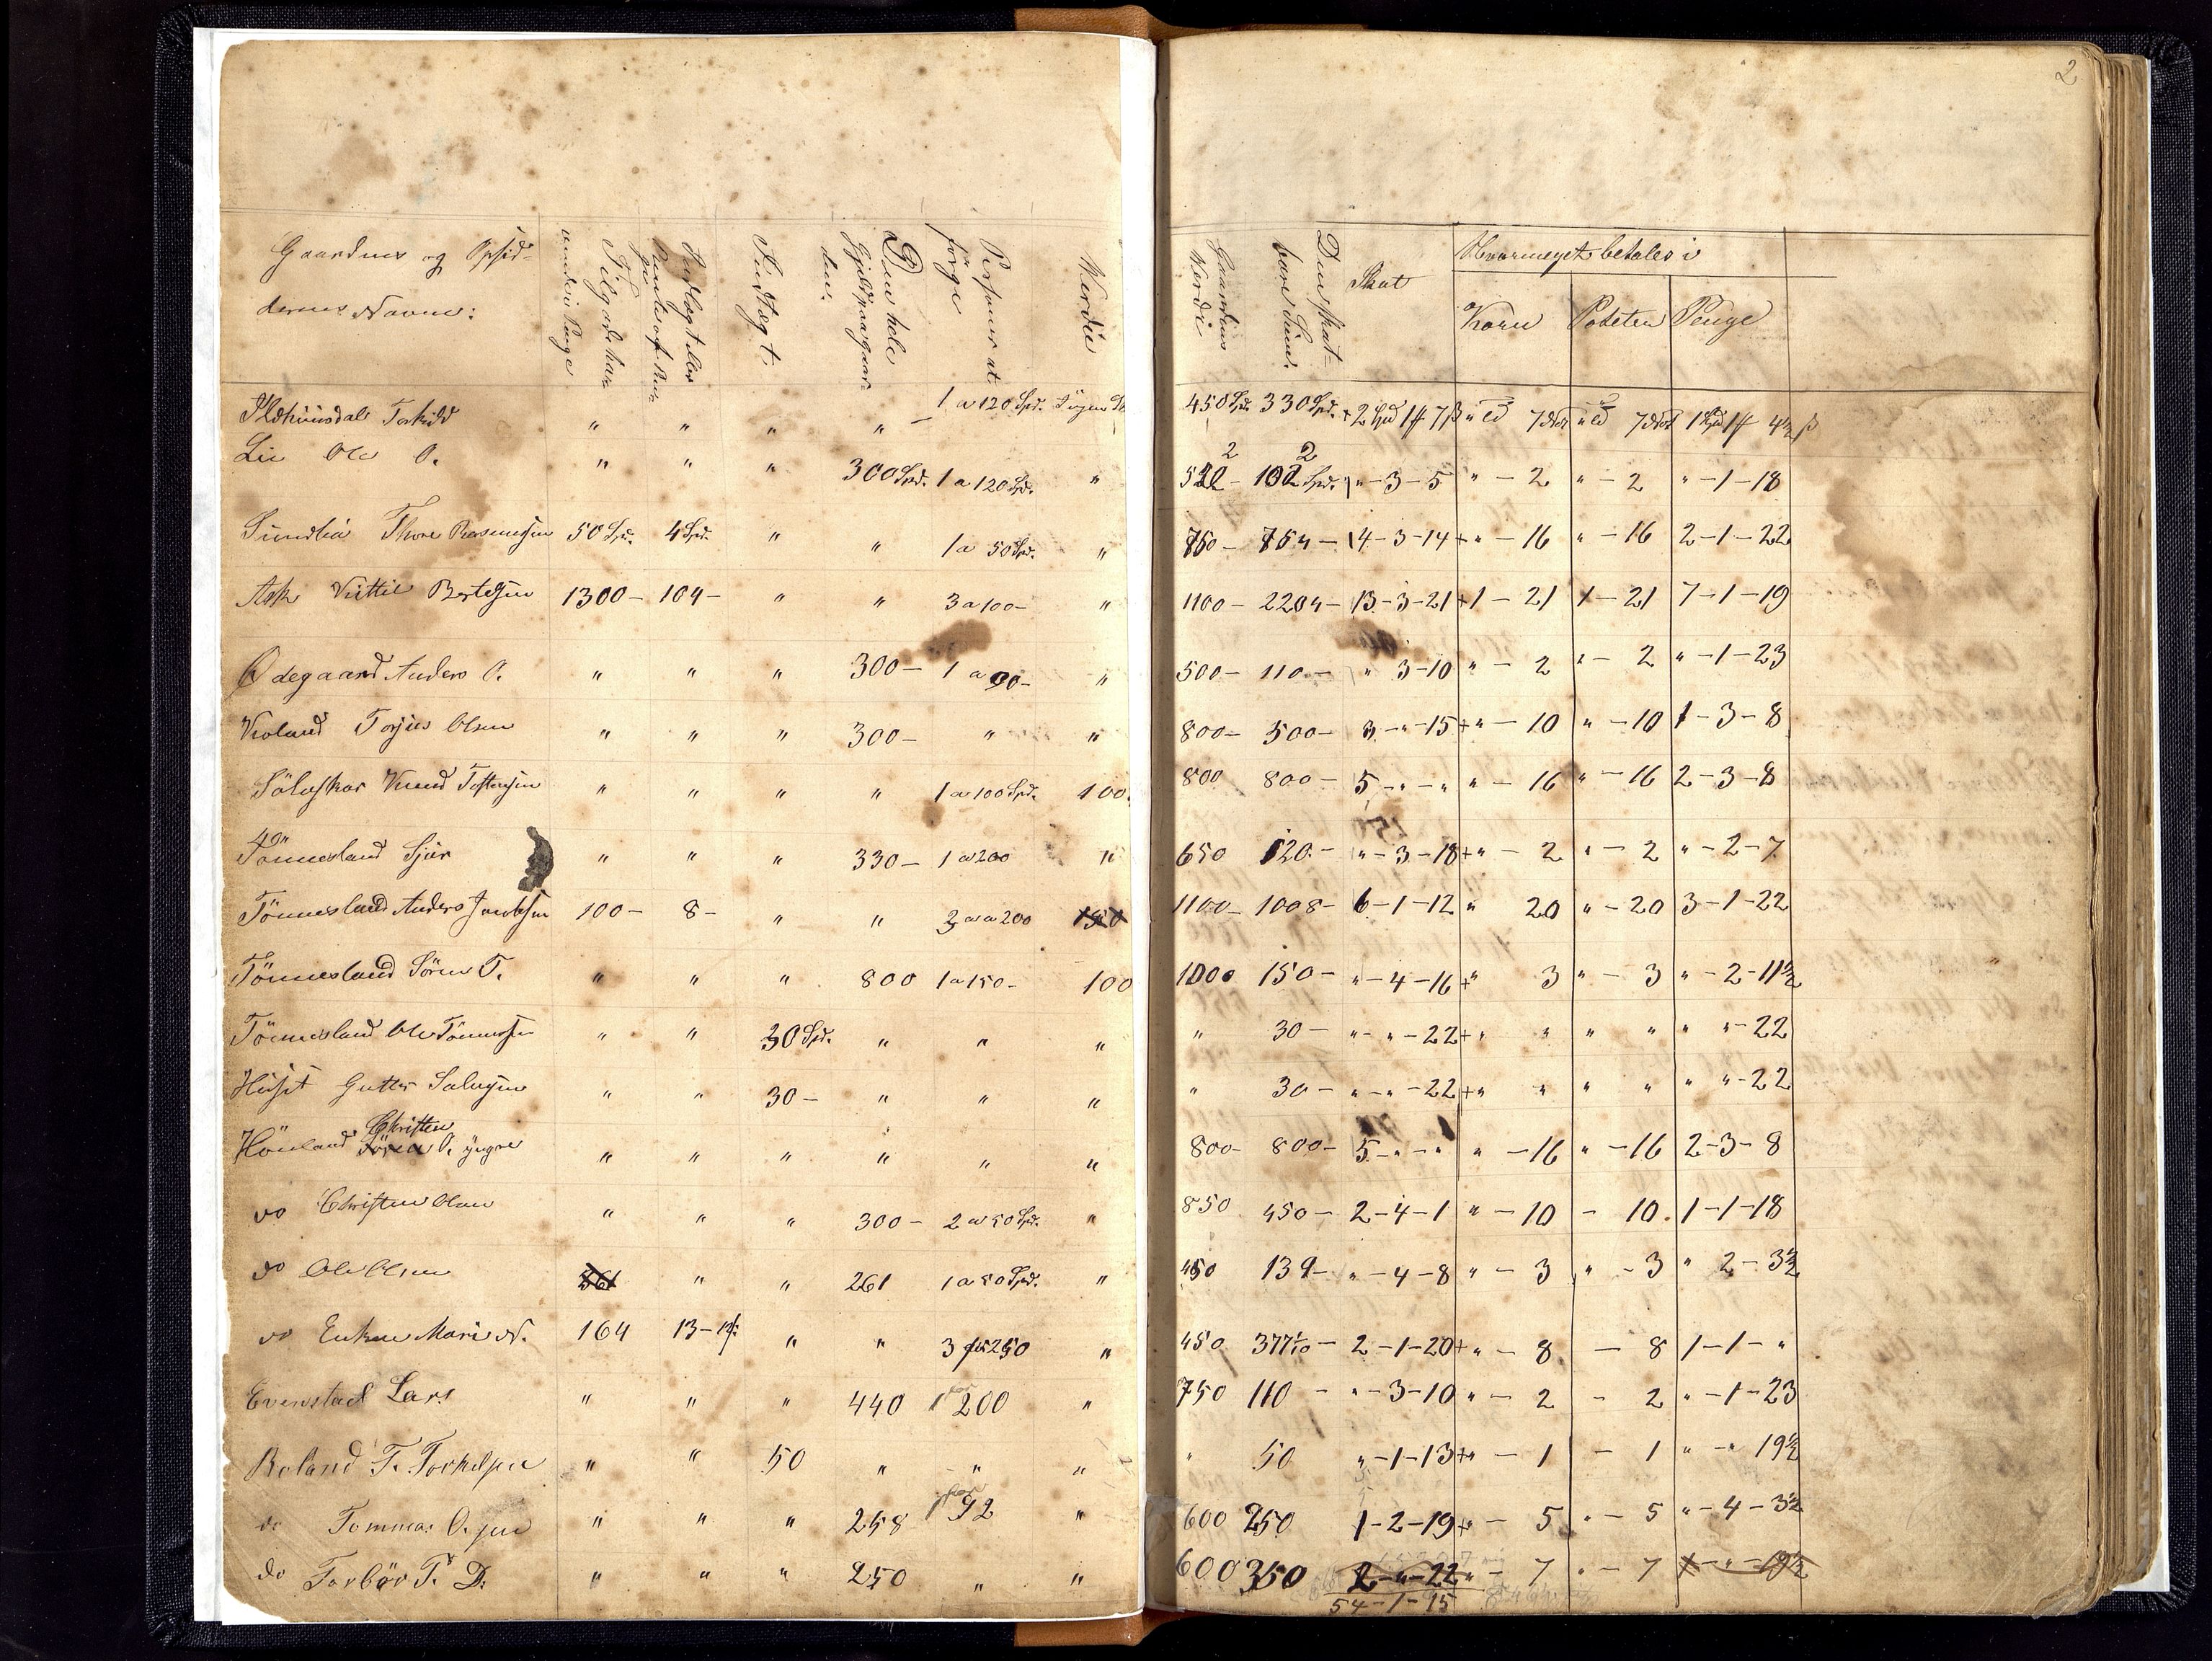 2
Gaardens og Opsid-
dernes Navne:
Tilgode ha-
vende i Penge
Indtægt
Den hele
Gjeld paa gaar-
den.
Personer at
forsørge
Værdie
Gaardens
Værdi
Den skat-
bare Sum.
Skat
Hvormeget betales i
Korn Poteter Penge
Torkild " " " " 1 a 120 Spd. 450 Spd. 330 Spd.
Lie Ole O. " " " 300 Spd. 1 a 120 Spd. " 522 - 102 Spd. " - 3 - 5 " - 2 " - 2 " - 1 - 18
Sundlia Thore Rasmussen 50 Spd. 4 Spd. " " 1 a 50 Spd. " 750 - 754 - 4 - 3 - 14 + " - 16 " - 16 2 - 1 - 22
Ask Kittil Bertelsen 1300 - 104 - " " 3 a 100 - " 1100 - 2204 - 13 - 3 - 21 + 1 - 21 1 - 21 7 - 1 - 19
Ødegaard Anders O. " " " 300 - 1 a 90 - " 500 - 110 - " 3 - 10 " - 2 " - 2 " - 1 - 23
Violand Torjus Olsen " " " 300 - " " 800 - 500 - 3 - " - 15 + " - 10 " - 10 1 - 3 - 8
Sølaskar Knud Tostensen " " " " 1 a 100 Spd. 100 800 800 - 5 - " - " " - 16 " - 16 2 - 3 - 8
Tönnesland Sjur " " " 330 - 1 a 200 " 650 120 - " - 3 - 18 + " - 2 " - 2 " - 2 - 7
Tönnesland Anders Jacobsen 100 - 8 - " " 3 a 200 1100 - 1008 - 6 - 1 - 12 " 20 " - 20 3 - 1 - 22
Tönnesland Sören T. " " " 800 1 a 150 - 100 1000 150 - " - 4 - 16 + " 3 " - 3 " - 2 - 11½
Tönnesland Ole Tönnessen " " 30 Spd. " " " " 30 - " - " - 22 + " " " " " " - 22
Huset Gutter Salvesen " " 30 - " " " " 30 - " - " - 22 + " " " " " " - 22
Christen
Hönland Sören O. yngre " " " " " " 800 - 800 - 5 - " - " " - 16 " - 16 2 - 3 - 8
do Christen Olsen " " " 300 - 2 a 50 Spd. " 850 450 - 2 - 4 - 1 " - 10 - 10. 1 - 1 - 18
do Ole Olsen 261 " " 261 1 a 50 Spd. " 450 139 - " - 4 - 8 " - 3 " - 3 " 2 - 3½
do Enken Mari N. 164 " " 3 for 250 " 450 377 - 2 - 1 - 20 + " - 8 - 8 1 - 1 - "
Evenstad Lars " " " 440 1 for 200 " 750 110 - " - 3 - 10 " - 2 - 2 " - 1 - 23
Roland T. Torkelsen " " 50 " " " " 50 " - 1 - 13 + " - 1 - 1 " - " 19½
do Tommas O. sen " " " 258 1 for 92 " 600 250 1 - 2 - 19 + " - 5 " - 5 " - 4 - 3½
do Torbör T. D. " " " 250 " " 600 350 2 - " - 22 " - 7 " - 7 1 - " - 19½
54 - 1 - 15